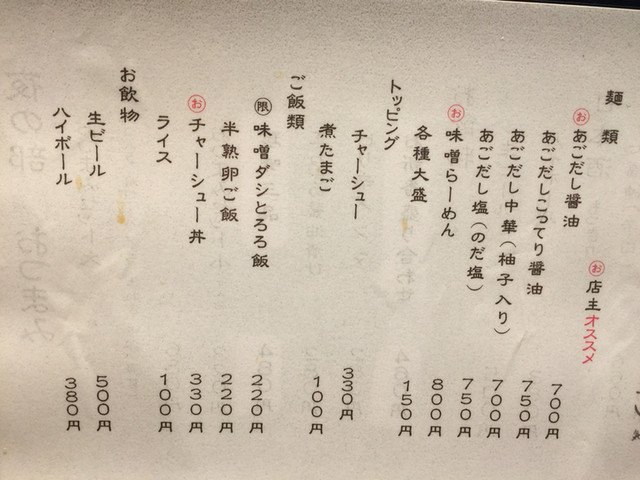 麺類
㊔店主オススメ
㊔あごだし醤油 700円
あごだしこってり醤油 750円
あごだし中華(柚子入り) 700円
あごだし塩(のだ塩) 750円
㊔味噌らーめん 800円
各種大盛 150円
トッピング
チャーシュー 330円
煮たまご 100円
ご飯類
㊐味噌ダシとろろ飯 220円
半熟卵ご飯 220円
㊔チャーシュー丼 330円
ライス 100円
お飲物
生ビール 500円
ハイボール 380円